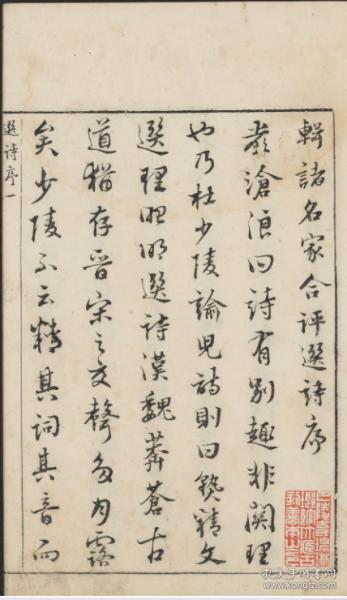 輯諸名家合評選詩序
嚴滄浪曰詩有別趣非關理
也乃杜少陵論兒詩則曰熟精文
選理昭明選詩漢魏莽蒼古
道猶存晉宋之交聲色內露
矣少陵不云精其詞其音而
選詩序一